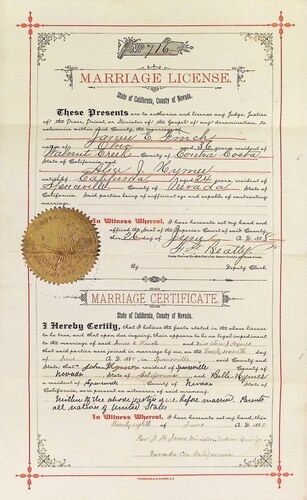 No 716
MARRIAGE LICENSE.
State of California, County of Nevada.
These Presents are to authorize and license any Judge, Justice
of the Peace, Priest, or Minister of the Gospel of any denomination, to
solemnize within said County, the marriage of
James E. Finch
native of Ohio aged 36 years, resident of
Walnut Creek County of Contra Costa
State of California, and
Alice J. Hymer
native of California aged 24 years, resident of
Spenceville County of Nevada State of
California. Said parties being of sufficient age and capable of contracting
marriage.
In Witness Whereof, I have hereunto set my hand and
affixed the Seal of the Superior Court of said County,
this 26 day of June A.D. 188
Beatty
By
Deputy Clerk.
MARRIAGE CERTIFICATE.
State of California, County of Nevada.
I Hereby Certify, that I believe the facts stated in the above license
to be true, and that upon due inquiry, there appears to be no legal impediment
to the marriage of said James E. Finch and Alice J.
that said parties were joined in marriage by me, on the day of
June A.D. 188 in Spenceville said County and
State; that John resident of Spenceville
Nevada State of California and Belle
a resident of Spenceville County of Nevada State of
California, were present as witnesses of said ceremony.
Neither of the above parties were before married. Parents
all natives of United States
In Witness Whereof, I have hereunto set my hand, this
Twenty eighth day of June A.D. 188
Rev. J. Minister, Indian Springs
Nevada Co. California